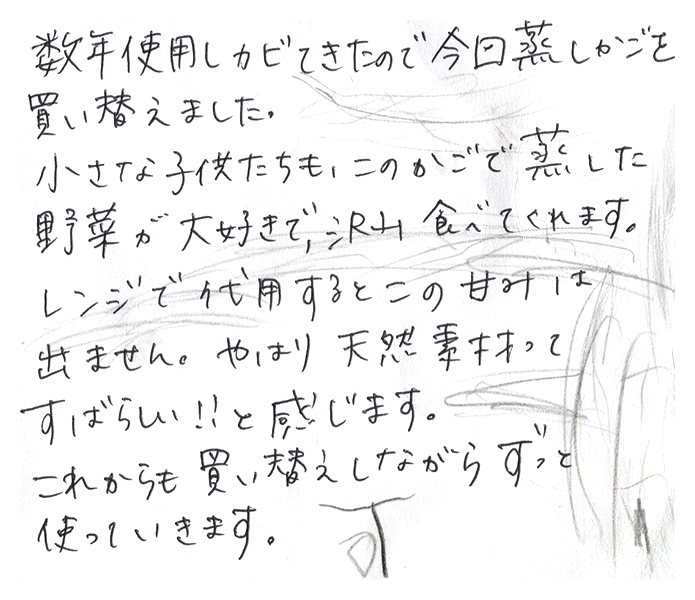 数年使用しカビてきたので今回蒸しかごを
買い替えました。
小さな子供たちも、このかごで蒸した
野菜が大好きで、沢山食べてくれます。
レンジで代用するとこの甘みは
出ません。やはり天然素材って
すばらしい!!と感じます。
これからも買い替えしながらずっと
使っていきます。